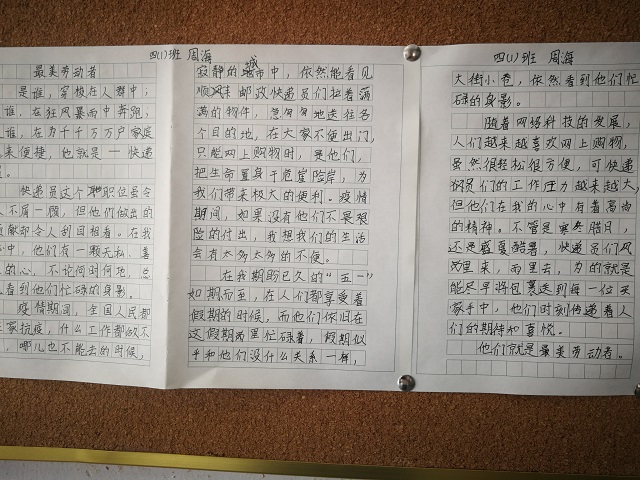 四(1)班 周海
最美劳动者
是谁,穿梭在人群中;
谁,在狂风暴雨中奔跑;
谁,在为千千万万户家庭
来便捷,他就是一快递
。
快递员这个职位虽令
人不屑一顾,但他们做出的
献却令人刮目相看。在我
中,他们有一颗无私、善
的心,不论何时何地,总
看到他们忙碌的身影。
疫情期间,全国人民都
家抗疫,什么工作都做不
,哪儿也不能去的时候,
寂静的城市中,依然能看见
顺丰邮政快递员们拉着满
满的物件,忽匆匆地送往各
个目的地,在大家不便出门,
只能网上购物时,是他们,
把生命置身于危崖险岸,为
我们带来极大的便利。疫情
期间,如果没有他们不畏艰
险的付出,我想我们的生活
会有太多太多的不便。
在我期盼已久的“五一”
如期而至,在人们都享受着
假期的时候,而他们依旧在
这假期两里忙碌着,假期似
乎和他们没什么关系一样,
四(1)班 周海
大街小巷,依然看到他们忙
碌的身影。
随着网络科技的发展,
人们越来越喜欢网上购物,
虽然很轻松很方便,可快递
员们的工作压力越来越大,
但他们在我的心中有着高尚
的精神。不管是寒冬腊月,
还是盛夏酷暑,快递员们风
里来,雨里去,为的就是
能尽早将包裹送到每一位买
家手中,他们时刻传递着人
们的期待和喜悦。
他们就是最美劳动者。